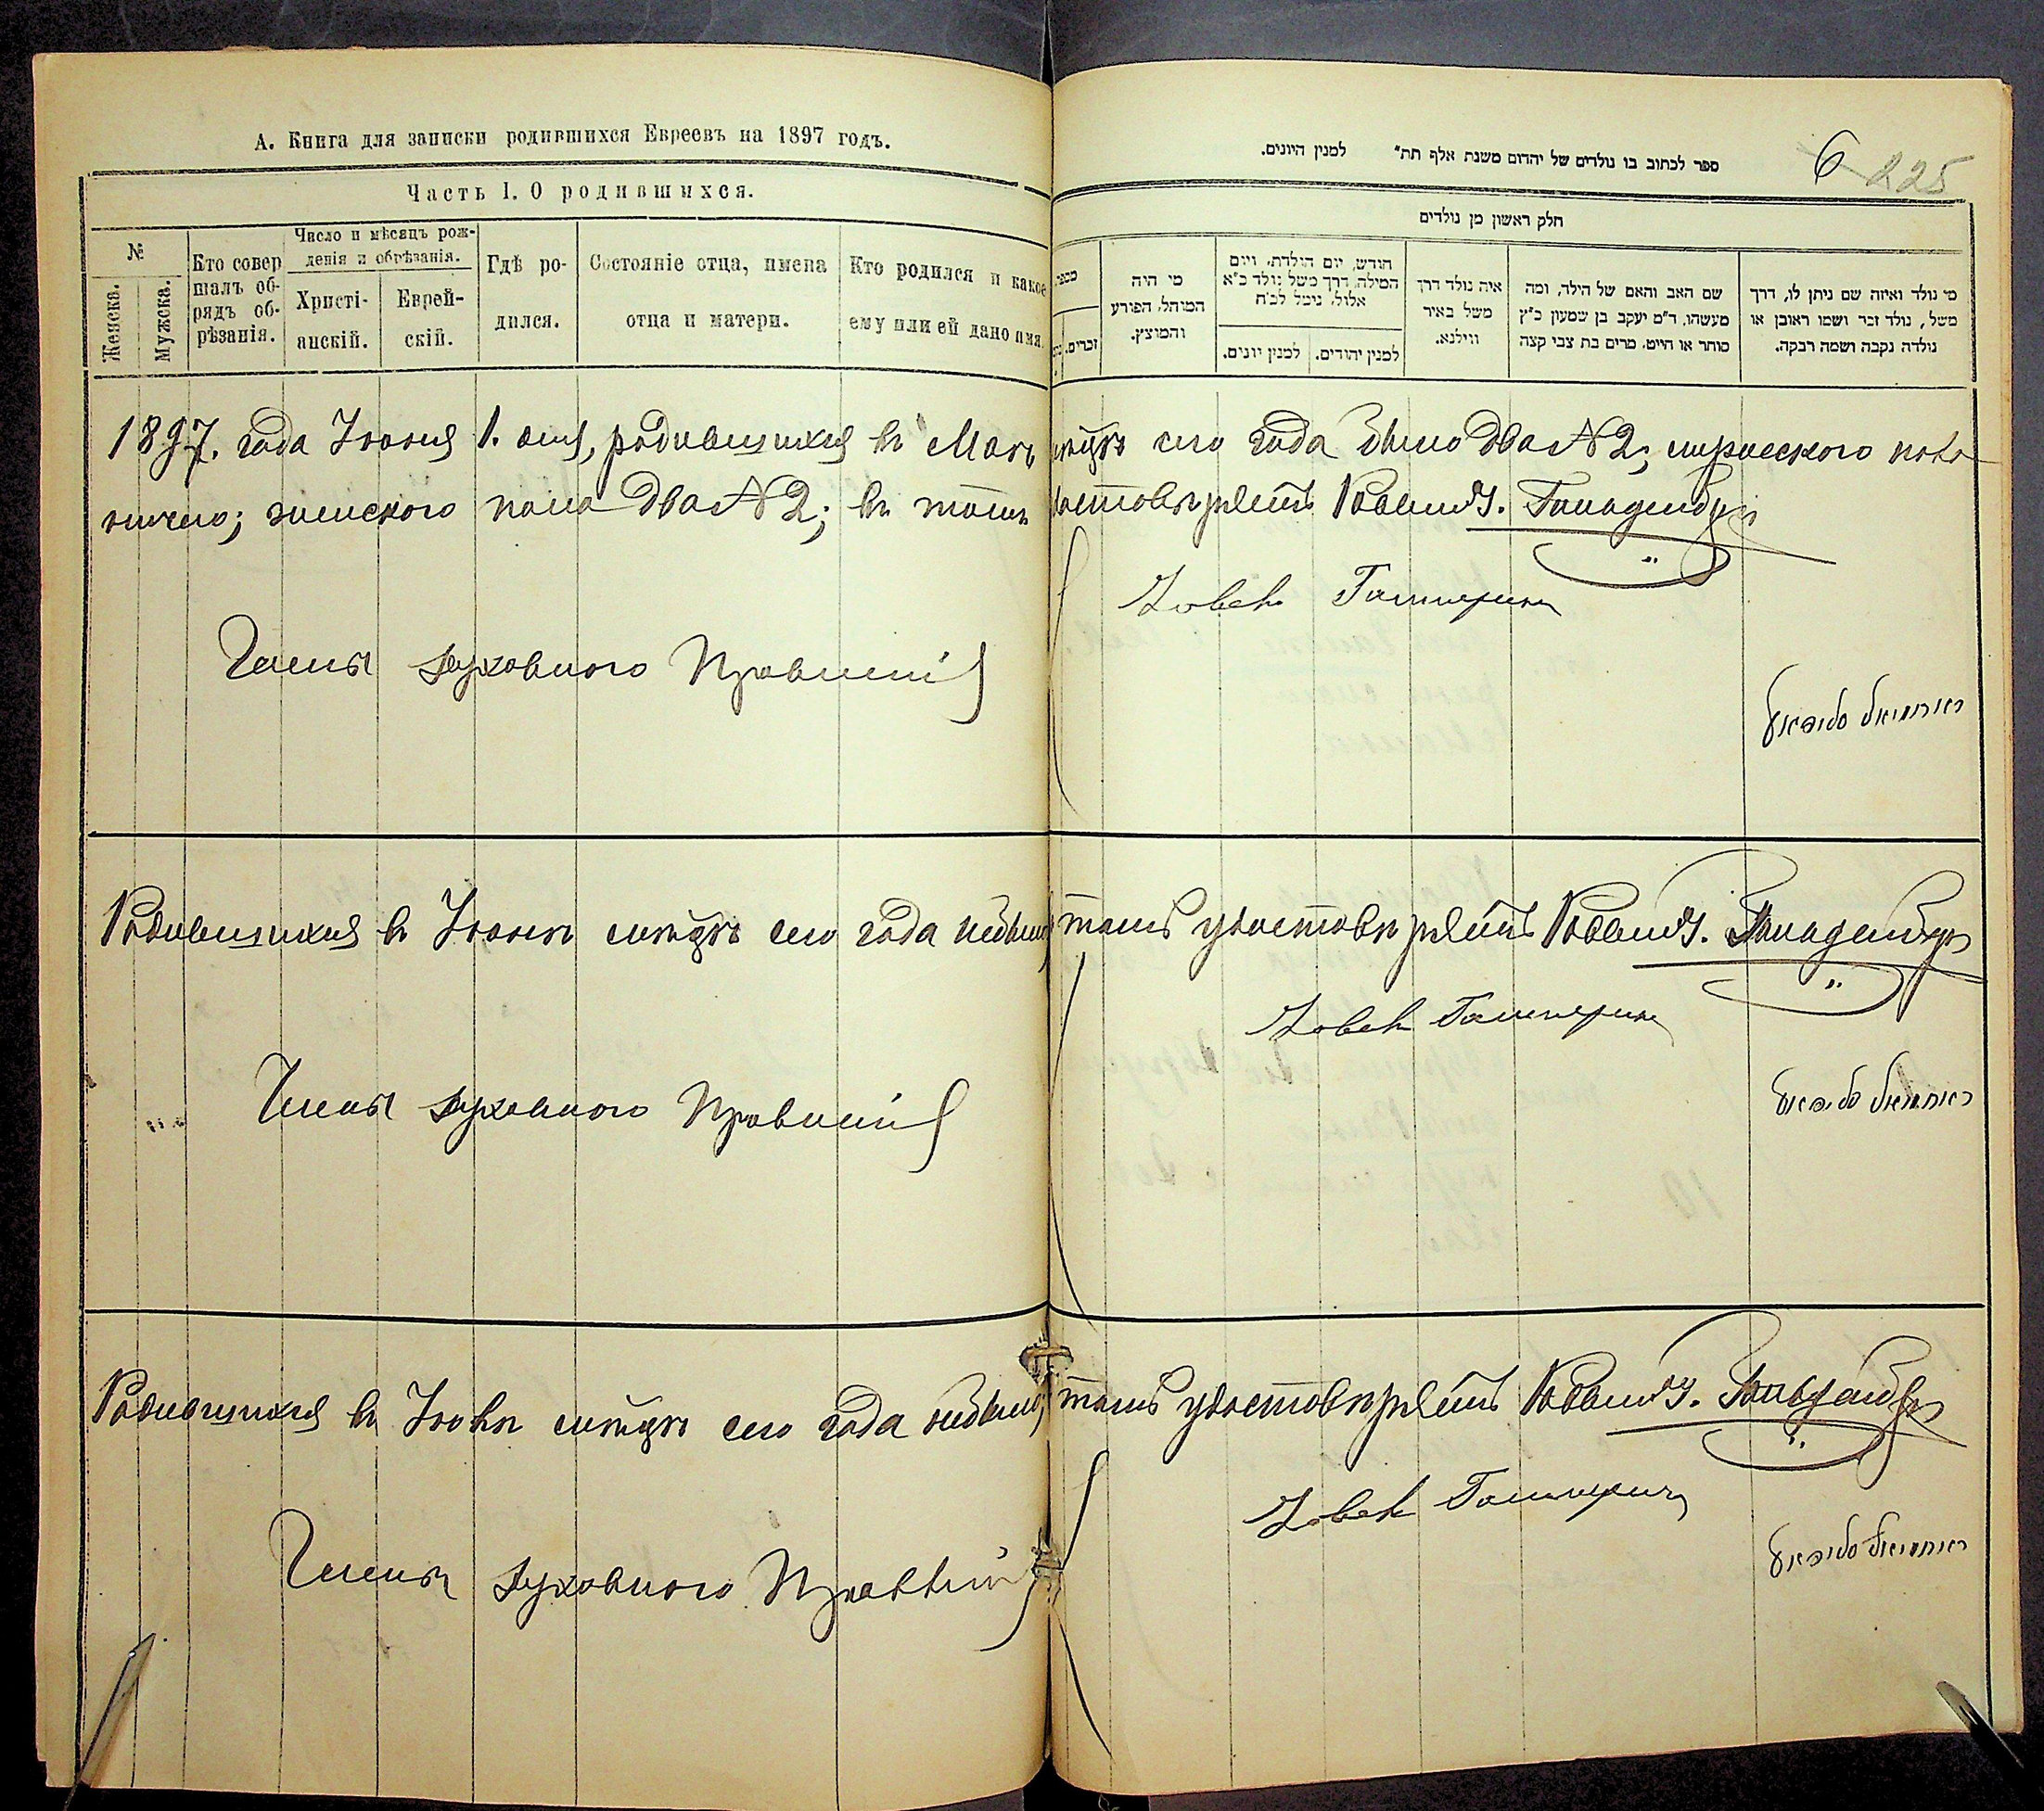 А. Книга для записки родившихся Евреевъ на 1897 годъ.
Часть I. О родившихся.
№
Женска.
Мужска.
Кто совершалъ обрядъ обрѣзанія.
Число и мѣсяцъ рожденія и обрѣзанія.
Христіанскій.
Еврейскій.
Гдѣ родился.
Состояніе отца, имена отца и матери.
Кто родился и какое ему или ей дано имя.
ספר לכתוב בו נולדים של יהדום משנת אלף תת״ למנין היונים.
6 225
חלק ראשון מן נולדים
זכרים.
מי היה המוהל, הפורע והמוצץ.
חודש, יום הולדת, ויום המילה, דרך משל נולד כ״א אלול, נימל לכ״ח
למנין יונים.
למנין יהודים.
איה נולד דרך משל באיר ווילנא.
שם האב והאם של הילד, ומה מעשהו, ד״מ יעקב בן שמעון כ״ץ סוחר או חייט, מרים בת צבי קצה
מי נולד ואיזה שם ניתן לו, דרך משל, נולד זכר ושמו ראובן או נולדה נקבה ושמה רבקה.
1897. года Іюня 1. дня, родившихся въ Маѣ мѣсяцѣ сего года было два № 2; мужескаго пола
ничего; женскаго пола два № 2; въ томъ удостовѣряемъ Раввинъ
Члены духовного Правленія
Родившихся въ Іюнѣ мѣсяцѣ сего года небыло, въ томъ удостовѣряемъ Раввинъ
Члены духовного Правленія
Родившихся въ Іюлѣ мѣсяцѣ сего года небыло, въ томъ удостовѣряемъ Раввинъ
Члены духовного Правленія